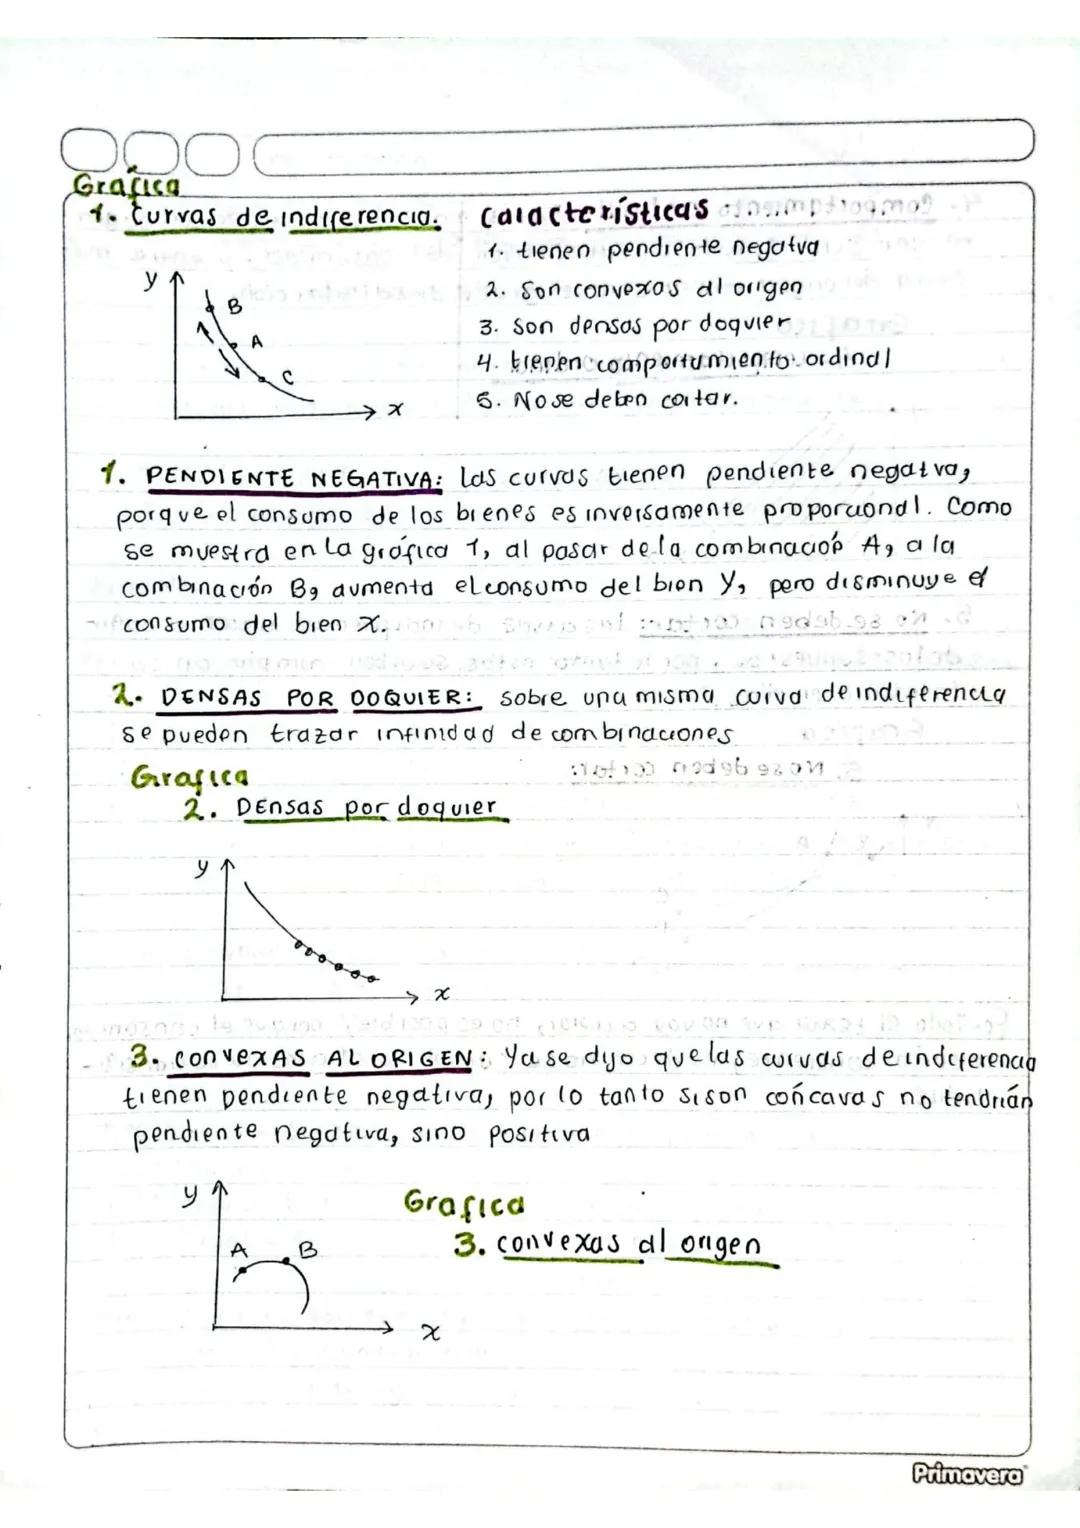 Grafica
1. Curvas de indiferencia.
Características
1. tienen pendiente negatva
2. Son convexas al origen
3. Son densas por doquier
4. tienen comportamiento ordinal
5. No se deben cortar.
y
B
A
C
x
1. PENDIENTE NEGATIVA: las curvas tienen pendiente negatva,
porque el consumo de los bienes es inversamente proporcional. Como
se muestra en la gráfica 1, al pasar de la combinación A, a la
combinación B, aumenta el consumo del bien y, pero disminuye el
consumo del bien x.
2. DENSAS POR DOQUIER: sobre una misma curva de indiferencia
se pueden trazar infinidad de combinaciones
Grafica
2. DEnsas por doquier
y
x
3. CONVEXAS AL ORIGEN: Ya se dijo que las curvas de indiferencia
tienen pendiente negativa, por lo tanto si son cóncavas no tendrián
pendiente negativa, sino positiva
y
Grafica
3. convexas al origen
A
B
x
Primavera